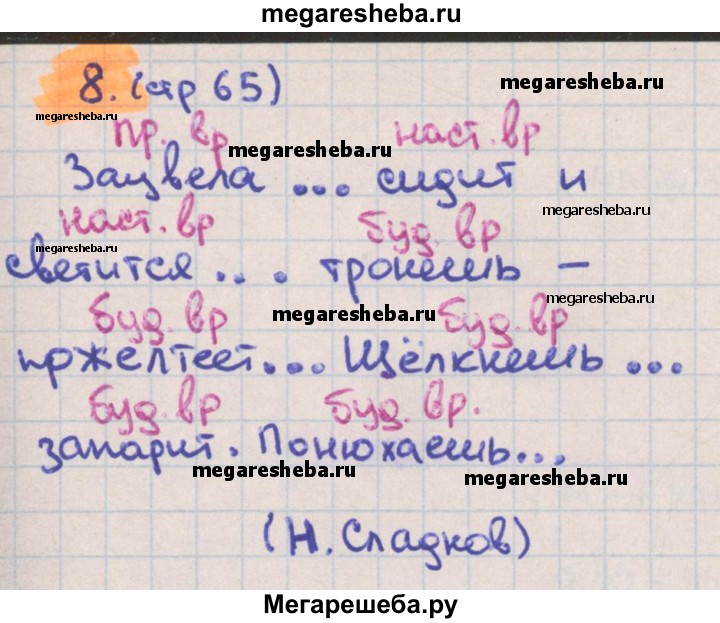 megaresheba.ru
8. (стр 65)
megaresheba.ru
megaresheba.ru
пр. вр наст. вр
megaresheba.ru
Зацвела ... сидит и
megaresheba.ru
наст. вр буд. вр
megaresheba.ru
светится ... трокешь –
megaresheba.ru
буд. вр megaresheba.ru буд. вр
пржелтеет... Щёлкнешь ...
буд. вр буд. вр.
запарит. Понюхаешь...
megaresheba.ru megaresheba.ru
(Н. Сладков)
Мегарешеба.ру